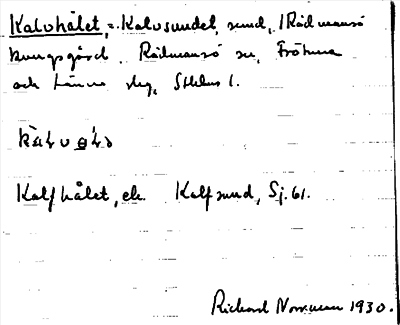 Kalvhålet, = Kalvsundet, sund, /Rådmansö
kungsgård. Rådmansö sn, Frötuna
och Länna slg, Sthlms l.
Kalfhålet, el. Kalfsund, Sj. 61.
Richard Norrman 1930.